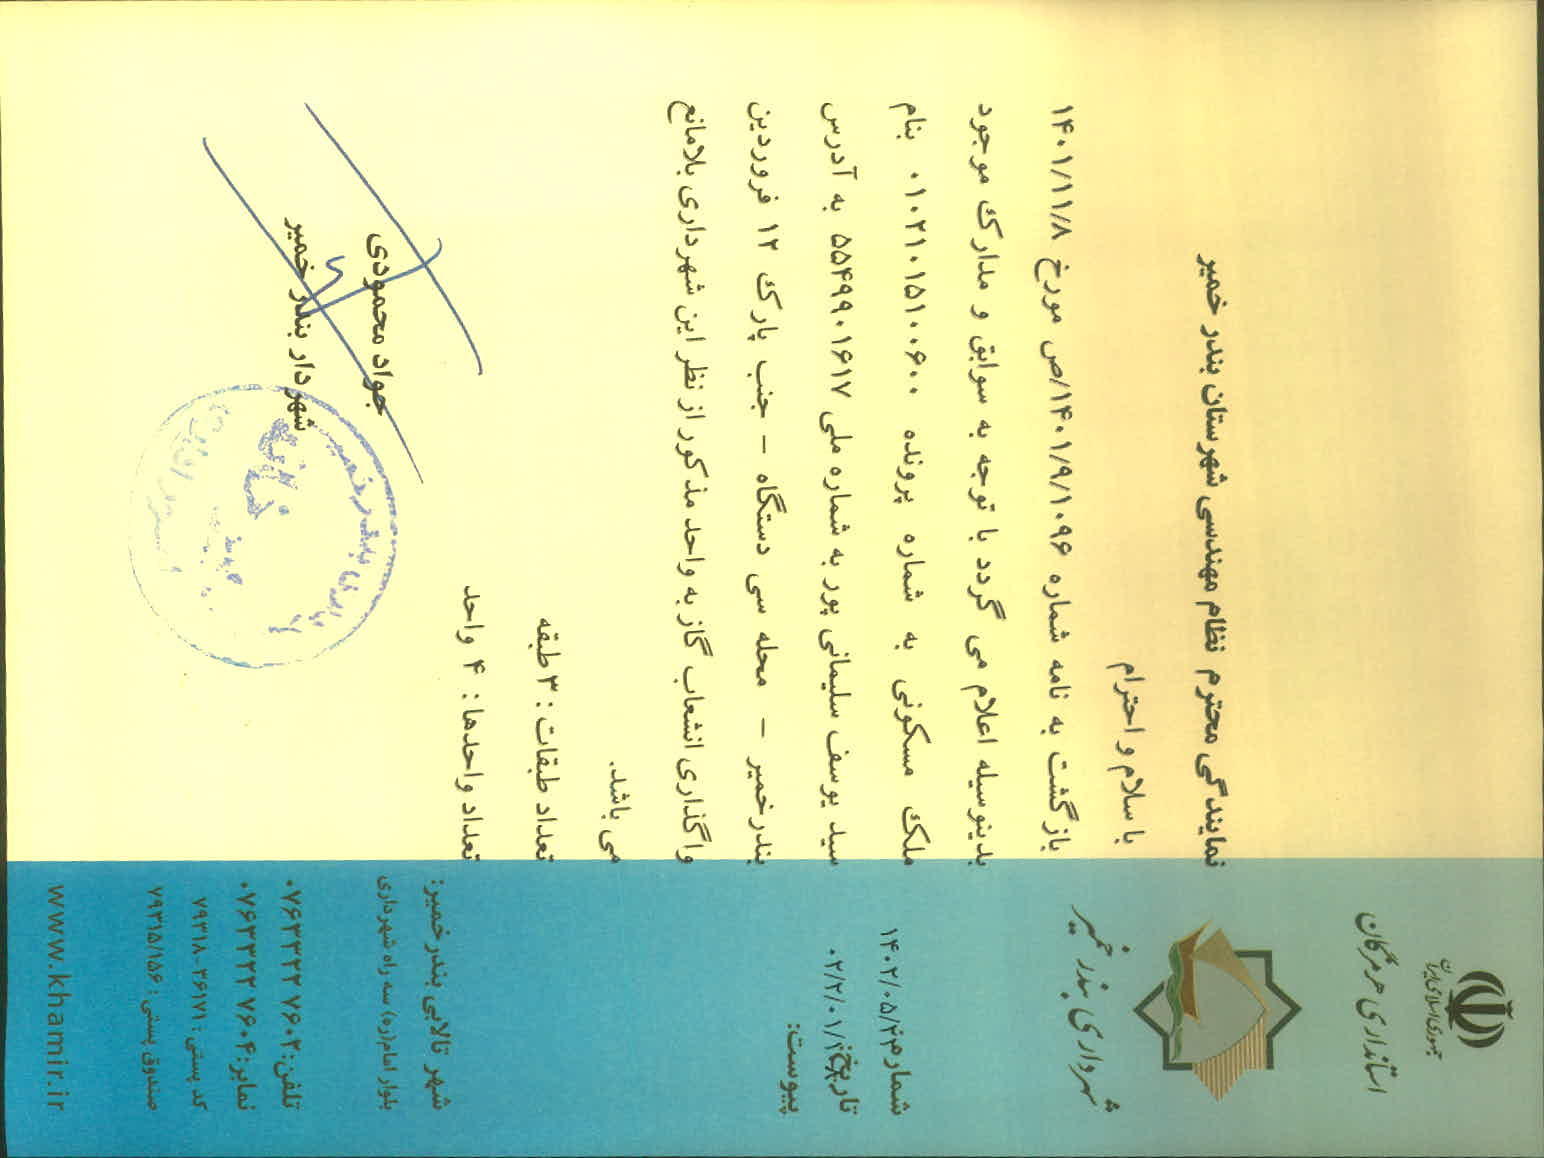 جمهوری اسلامی ایران
استانداری هرمزگان
شهرداری بندر خمیر
شماره:
تاریخ:
پیوست:
نمایندگی محترم نظام مهندسی شهرستان بندر خمیر
با سلام و احترام
بازگشت به نامه شماره ۱۴۰۱/۹/۱۰۹۶/ص مورخ ۱۴۰۱/۱۱/۸
بدینوسیله اعلام می گردد با توجه به سوابق و مدارک موجود
ملک مسکونی به شماره پرونده ۰۱۰۲۱۰۱۵۱۰۰۶۰۰ بنام
سید یوسف سلیمانی پور به شماره ملی ۵۵۴۹۹۰۱۶۱۷ به آدرس
بندرخمیر - محله سی دستگاه - جنب پارک ۱۲ فروردین
واگذاری انشعاب گاز به واحد مذکور از نظر این شهرداری بلامانع
می باشد.
تعداد طبقات : ۳ طبقه
تعداد واحدها : ۴ واحد
جواد محمودی
شهردار بندر خمیر
شهر تالابی بندرخمیر:
بلوار امام(ره) سه راه شهرداری
تلفن: ۰۷۶۳۳۲۳ ۷۶۰۲
نمابر: ۰۷۶۳۳۲۳ ۷۶۰۴
کد پستی : ۲۶۱۷۱-۷۹۳۱۸
صندوق پستی : ۷۹۳۱۵/۱۵۶
www.khamir.ir